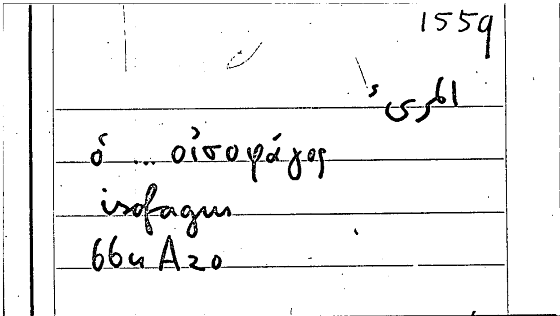 1559
المرىء
ὁ ... οἰσοφάγος
isofagus
66u A20